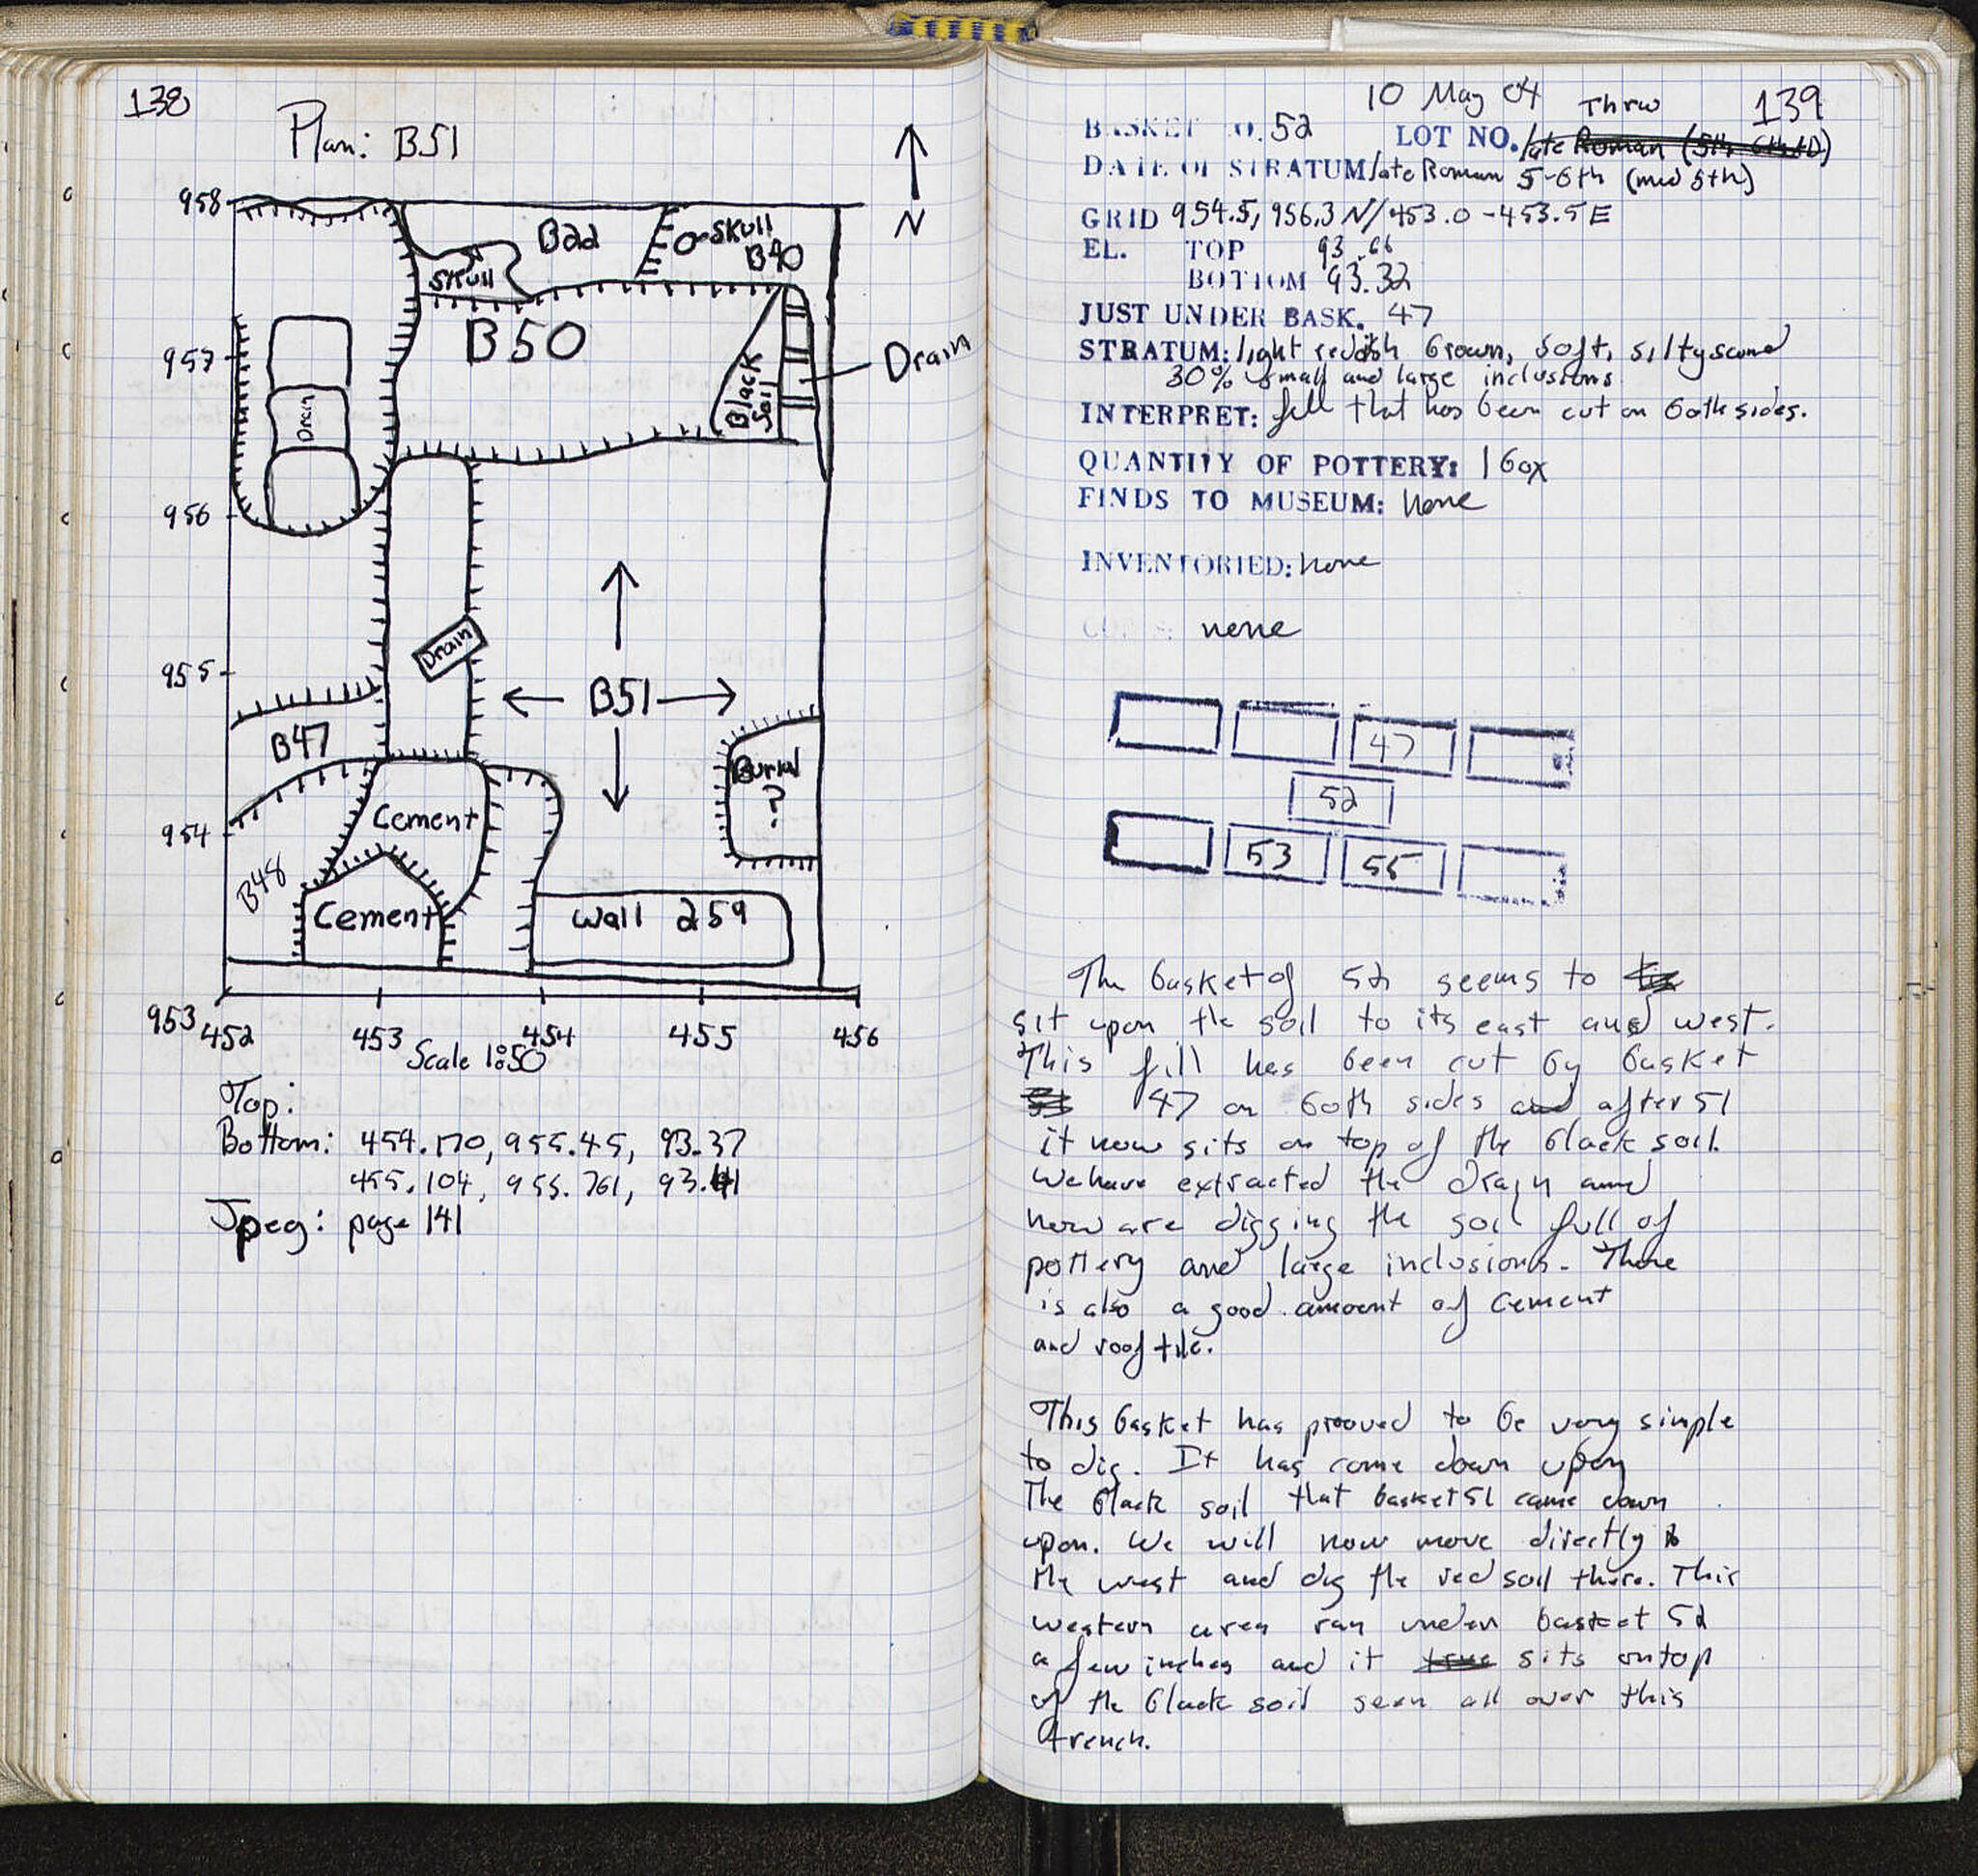 138
Plan: B51
N
958
957
956
955
954
953
B22
Skull
B40
Skull
B50
Black
Soil
Drain
Drain
Drain
B51
B47
Burial
?
Cement
B48
Cement
Wall 259
452 453 454 455 456
Scale 1:50
Top:
Bottom: 454.170, 955.45, 93.37
455.104, 955.761, 93.41
Jpeg: page 141
10 May 04 Thrw 139
BASKET NO. 52 LOT NO. late Roman (5th 6th AD)
DATE OF STRATUM late Roman 5-6th (mid 5th)
GRID 954.5, 956.3 N/453.0-453.5 E
EL. TOP 93.66
BOTTOM 93.32
JUST UNDER BASK. 47
STRATUM: light reddish brown, soft, silty sand
30% small and large inclusions
INTERPRET: fill that has been cut on both sides.
QUANTITY OF POTTERY: 1 box
FINDS TO MUSEUM: none
INVENTORIED: none
COINS: none
47
52
53 55
The basket of 52 seems to
sit upon the soil to its east and west.
This fill has been cut by basket
47 on both sides and after 51
it now sits on top of the black soil.
We have extracted the drain and
now are digging the soil full of
pottery and large inclusions. There
is also a good amount of cement
and roof tile.
This basket has prooved to be very simple
to dig. It has come down upon
The black soil that basket 51 came down
upon. We will now move directly to
the west and dig the red soil there. This
western area ran under basket 52
a few inches and it sits on top
of the black soil seen all over this
trench.